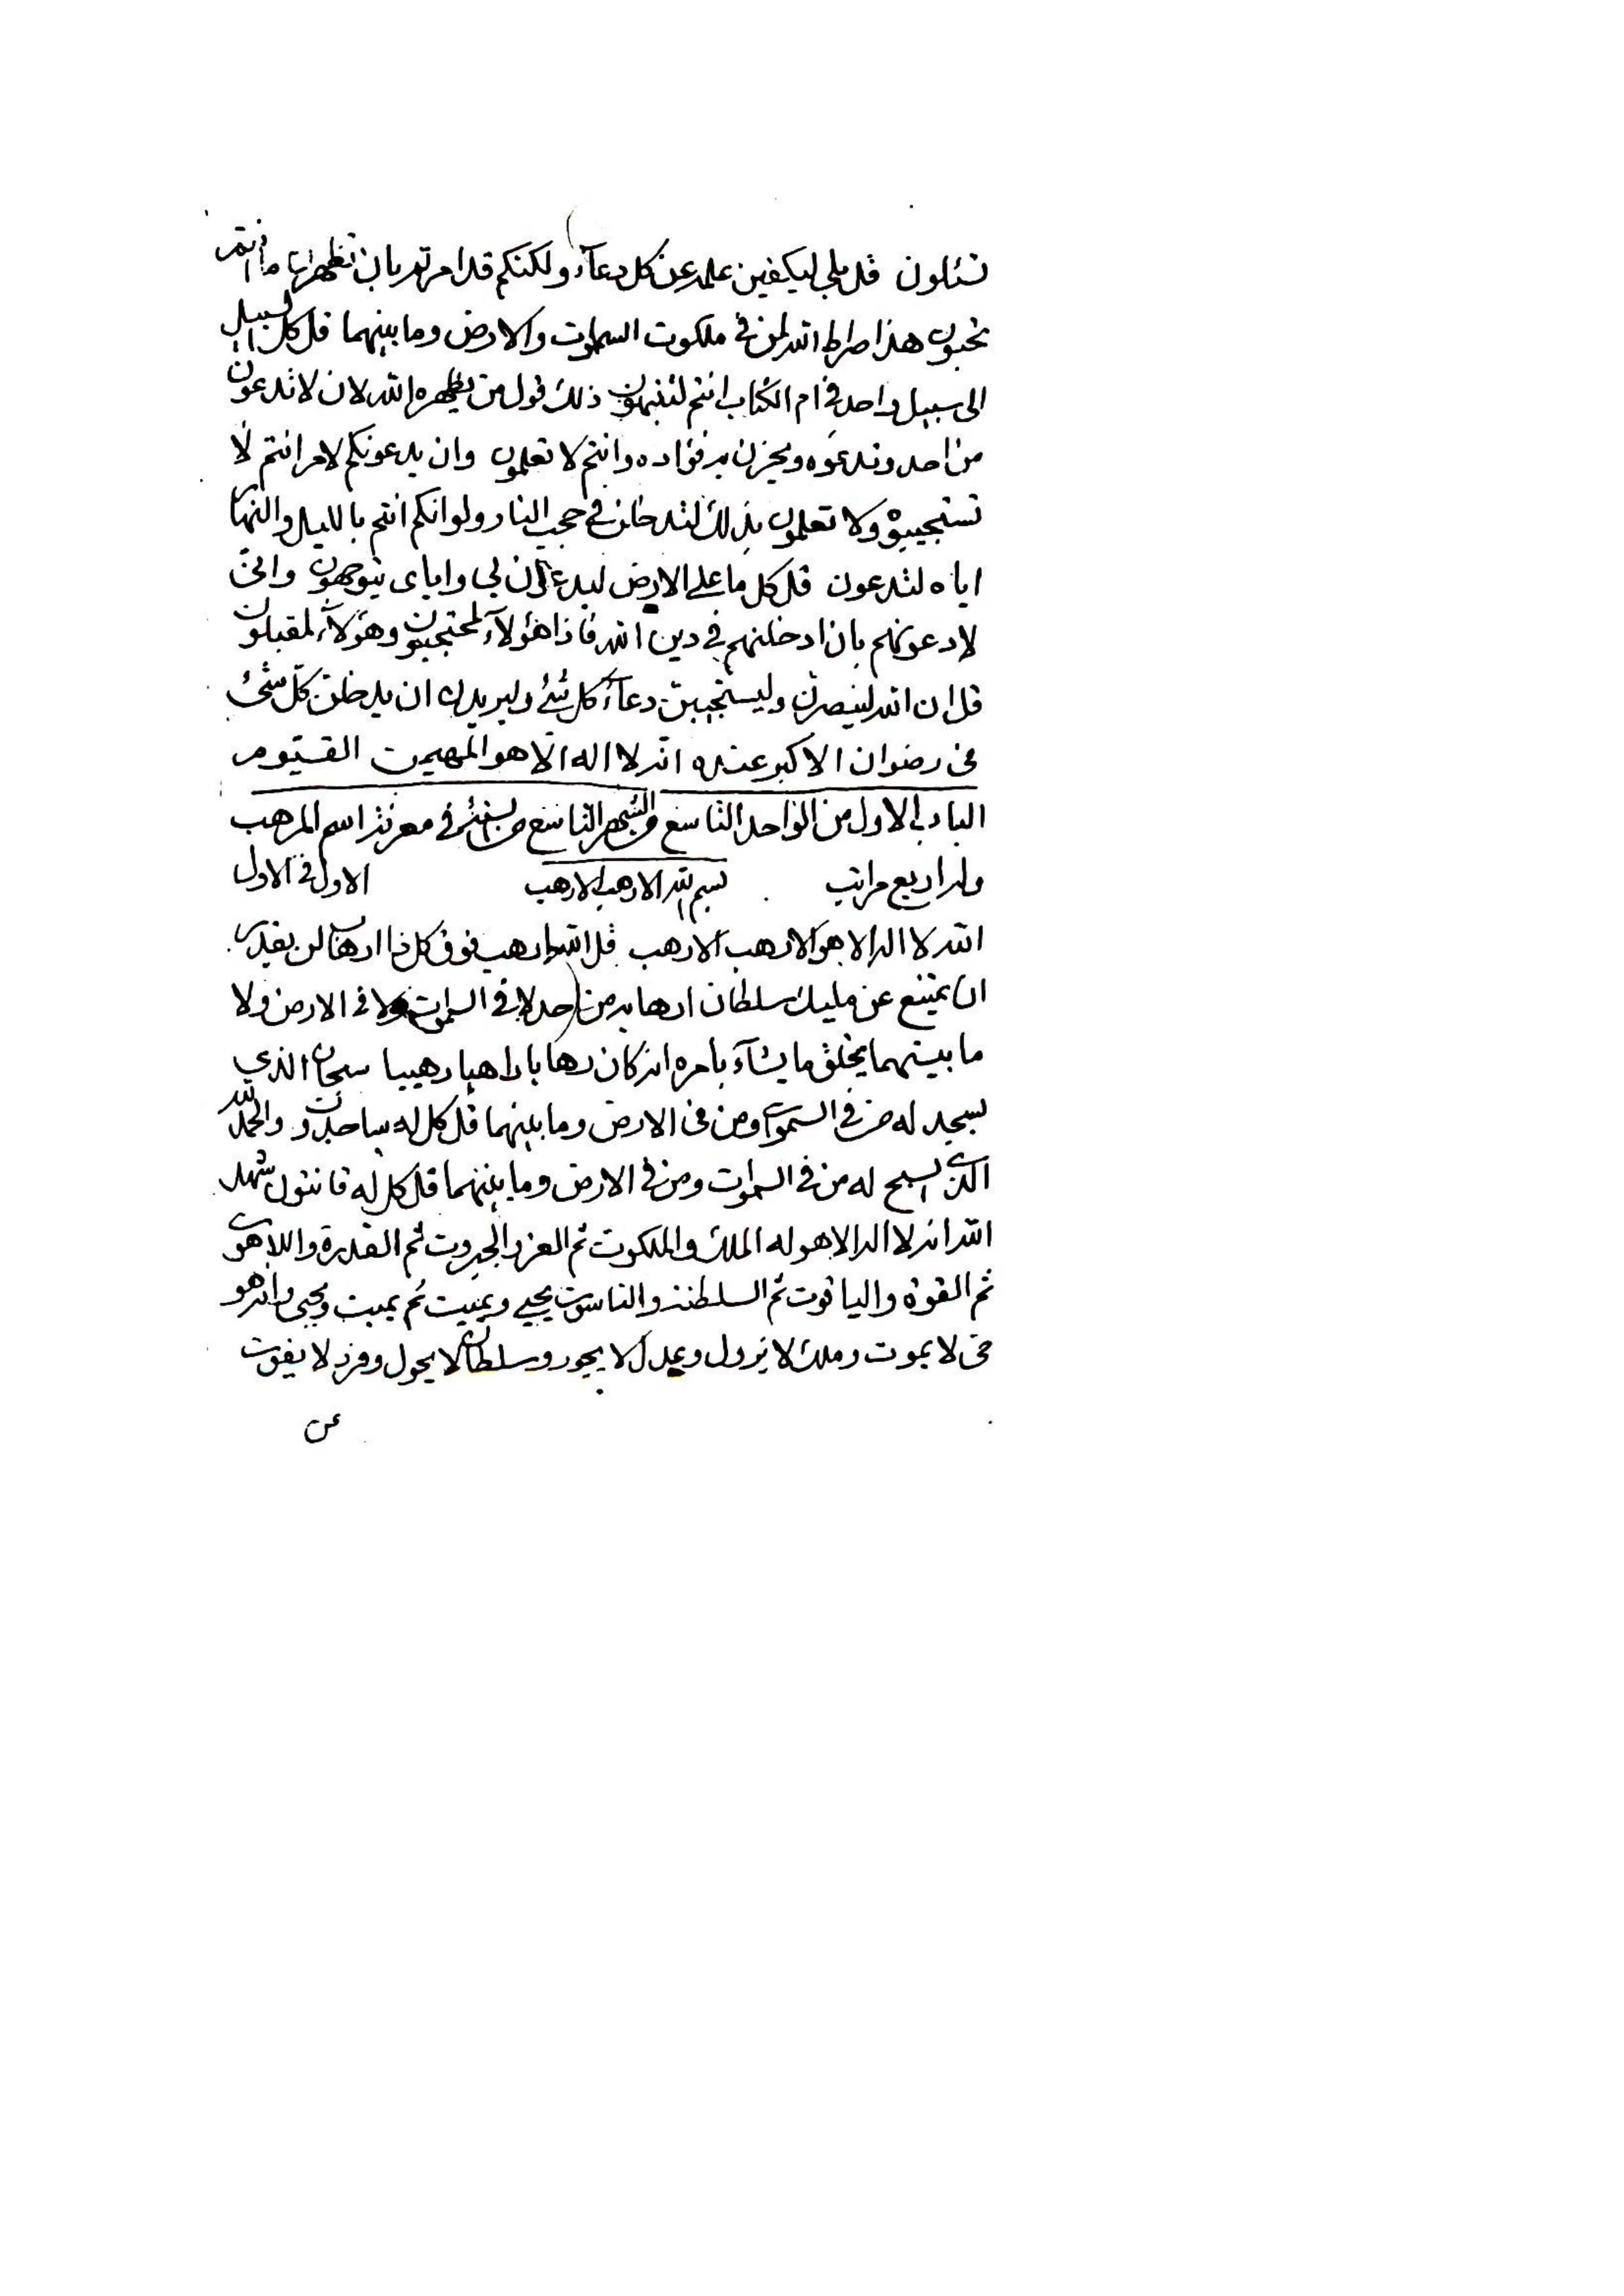 تسئلون قل بلى ليكفين علمه عن كل دعاء ولكنكم قد امرتم بان تظهرن ما انتم
تحبون هذا صراط الله لمن في ملكوت السموات والارض وما بينهما قل كل السبيل
الى سبيل واحد في ام الكتاب انتم لتنتهون ذلك قول من يظهره الله لان لا تدعون
من احد وتدعوه ويحزن به فؤاده وانتم لا تعلمون وان يدعونكم لامر انتم لا
تستجيبوه ولا تعلمون بذلك لتدخلن في حجب النار ولو انكم انتم بالليل والنهار
اياه لتدعون قل كل ما على الارض ليدعون لي واياي يتوجهون وانني
لادعونهم بان ادخلنهم في دين الله فاذا هؤلاء لمحتجبون وهؤلاء لمقبلون
قل ان الله لينصرن وليستجيبن دعاء كل شئ وليريدن ان يدخلن كل شئ
في رضوان الاكبر عنده انه لا اله الا هو المهيمن القيوم
الباب الاول من الواحد التاسع من الشهر التاسع من السنة في معرفة اسم المرهب
وله اربع مراتب بسم الله الارهب الارهب الاول في الاول
الله لا اله الا هو الارهب الارهب قل الله ارهب فوق كل ذا ارهاب لن يقدر
ان يمتنع عن مليك سلطان ارهابه من احد لا في السموات ولا في الارض ولا
ما بينهما يخلق ما يشاء بامره انه كان رهابا راهبا رهيبا سبحان الذي
يسجد له من في السموات ومن في الارض وما بينهما قل كل له ساجدون والحمد لله
الذي يسبح له من في السموات ومن في الارض وما بينهما قل كل له قانتون شهد
الله انه لا اله الا هو له الملك والملكوت ثم العز والجبروت ثم القدرة واللاهوت
ثم القوة والياقوت ثم السلطنة والناسوت يحيي ويميت ثم يميت ويحيى وانه هو
حي لا يموت وملك لا يزول وعدل لا يجور وسلطان لا يحول وفرد لا يفوت
عن